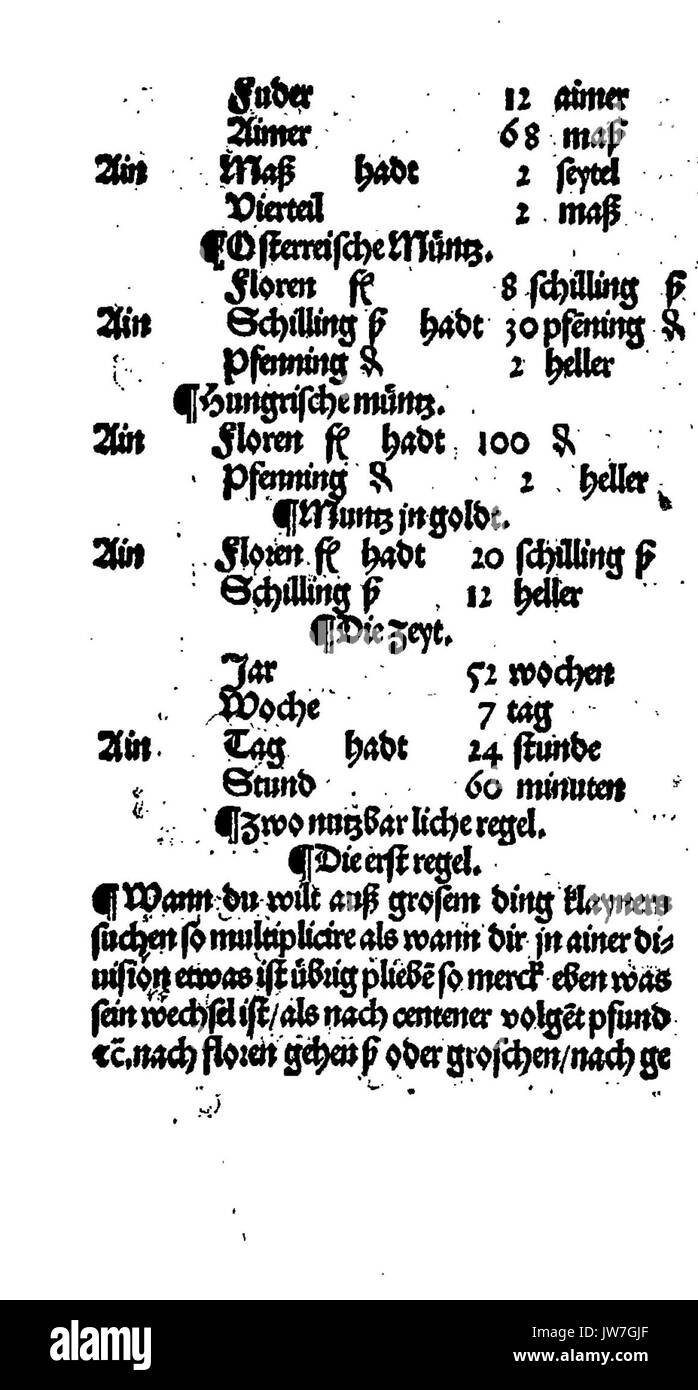 Fuder 12 aimer
Aimer 68 maß
Ain Maß hadt 2 seytel
Vierteil 2 maß
¶Osterreische Müntz.
Floren fl 8 schilling ß
Ain Schilling ß hadt 30 pfēning ₰
Pfenning ₰ 2 heller
¶Hungrische müntz.
Ain Floren fl hadt 100 ₰
Pfenning ₰ 2 heller
¶Muntz jn goldt.
Ain Floren fl hadt 20 schilling ß
Schilling ß 12 heller
¶Die zeyt.
Jar 52 wochen
Woche 7 tag
Ain Tag hadt 24 stunde
Stund 60 minuten
¶Zwo nutzbarliche regel.
¶Die erst regel.
¶Wann du wilt auß grosem ding klayners
suchen so multiplicire als wann dir jn ainer di⸗
uision etwas ist übrig pliebē so merck eben was
sein wechsel ist/als nach centener volgēt pfund
⁊c̄.nach floren gehen ß oder groschen/nach ge
alamy
Image ID: JW7GJF
www.alamy.com